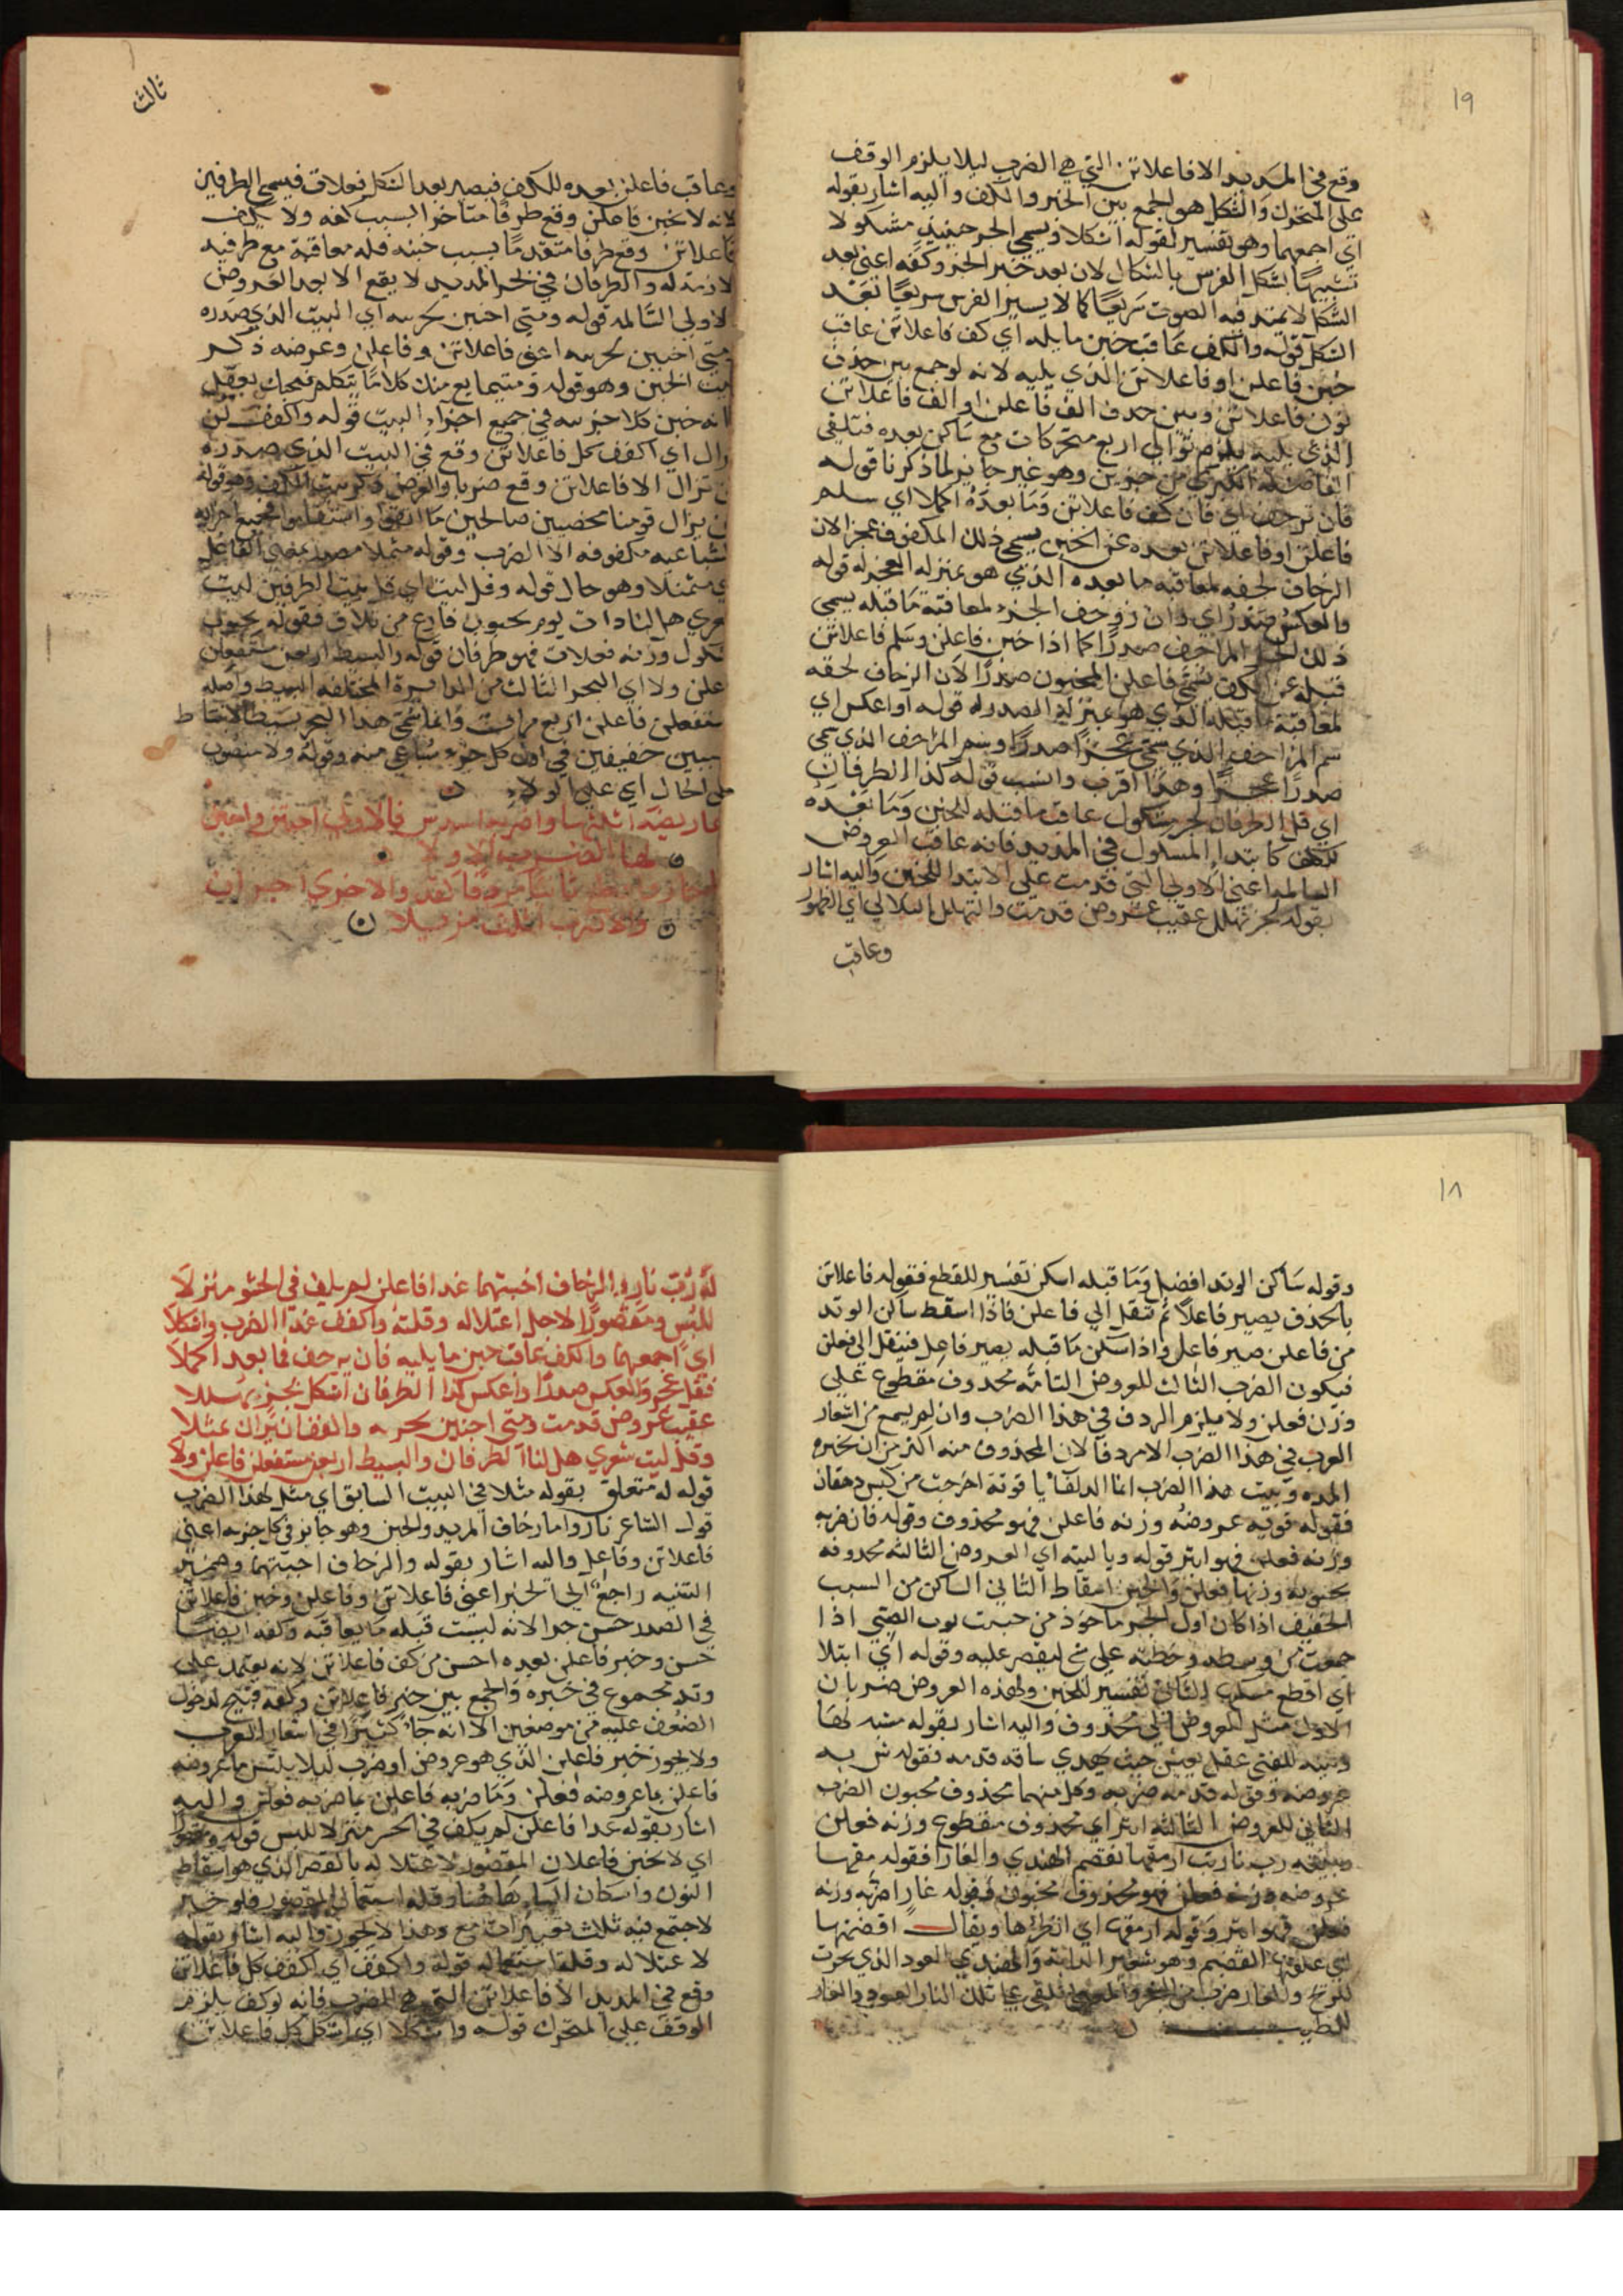 ١٩
وقع في المديد الا فاعلاتن التي هي الضرب ليلا يلزم الوقف
على المتحرك والشكل هو الجمع بين الخبن والكف واليه اشار بقوله
اي اجمعهما وهو تفسير لقوله اشكلا ويسمى الجزء حينيذ مشكولا
تشبيها بشكل الفرس بالشكال لان بعد خبن الجزء وكفه اعني بعد
الشكل لا يمتد فيه الصوت سريعا كما لا يسير الفرس سريعا بعد
الشكل قوله والكف عاقب خبن ما يليه اي كف فاعلاتن عاقب
خبن فاعلن او فاعلاتن الذي يليه لانه لو جمع بين حذف
نون فاعلاتن وبين حذف الف فاعلن او الف فاعلاتن
الذي يليه يلزم توالي اربع متحركات مع ساكن بعده فتلتقي
الفاصلة الكبرى من جزوين وهو غير جايز لما ذكرنا قوله
فان يزحف اي فان كف فاعلاتن وما بعده اكملا اي سلم
فاعلن او فاعلاتن بعده عن الخبن يسمى ذلك المكفوف عجزا لان
الزحاف لحقه لمعاقبة ما بعده الذي هو بمنزلة العجز له قوله
والعكس صدر اي وان زوحف الجزء لمعاقبة ما قبله يسمى
ذلك الجزء المزاحف صدرا كما اذا خبن فاعلن وسلم فاعلاتن
قبله عن الكف يسمى فاعلن المخبون صدرا لان الزحاف لحقه
لمعاقبة ما قبله الذي هو بمنزلة الصدر له قوله او اعكس اي
سم المزاحف الذي سمي عجزا صدرا وسم المزاحف الذي سمي
صدرا عجزا وهذا اقرب وانسب قوله كذا الطرفان
اي قل الطرفان لجزء مشكول عاقب ما قبله للخبن وما بعده
للكف كابتدا المسلول في المديد فانه عاقب العروض
السالمة اعني الاولى التي قدمت على الابتدا للخبن واليه اشار
بقوله بجزء تهلل عقيب عروض قدمت والتهلل التلالي اي الظهور
وعاقب
ثالث
وعاقب فاعلن بعده للكف فيصير بعد الشكل فعلات فيسمى الطرفين
لانه لا يخبن فاعلن وقع طرفا متاخرا بسبب كفه ولا يكف
فاعلاتن وقع طرفا متقدما بسبب خبنه فله معاقبة مع طرفيه
لازمة له والطرفان في بحر المديد لا يقع الا بعد العروض
الاولى السالمة قوله ومتى اخبن بحريه اي البيت الذي صدره
متى اخبن بحريه اعني فاعلاتن وفاعلن وعرضه ذكر
بيت الخبن وهو قوله ومتى ما يع منك كلاما يتكلم فيجبك بعقل
فانه خبن كلا جزييه في جميع اجزاء البيت قوله واكفف لن
يزال اي اكفف كل فاعلاتن وقع في البيت الذي صدره
لن يزال الا فاعلاتن وقع ضربا والغرض ذكر بيت الكف وهو قوله
لن يزال قومنا مخصبين صالحين ما اتقوا واستقاموا فجميع اجزايه
السباعية مكفوفة الا الضرب وقوله متمثلا مصدر بمعنى الفاعل
اي متمثلا وهو حال قوله وقل ليت اي قل بيت الطرفين ليت
شعري هل لنا ذات يوم بجنوب فارع من تلاق فقوله بجنوب
شكول وزنه فعلات فهو طرفان قوله والبسيط اربعن مستفعلن
فاعلن ولا اي البحر الثالث من الدايرة المختلفة البسيط واصله
مستفعلن فاعلن اربع مرات وانما سمي هذا البحر بسيطا لانبساط
سببين خفيفين في اول كل جزء سباعي منه وقوله ولا منصوب
على الحال اي على الولاء
اعاريضه اثلثها واضربه اسدس فالاولى اخبنن واخبن
لها الضرب الاولا
والضرب اثلث مزيلا
١٨
وقوله ساكن الوتد افضل وما قبله اسكن تفسير للقطع فقوله فاعلاتن
بالحذف يصير فاعلا ثم تنقل الى فاعلن فاذا اسقط ساكن الوتد
من فاعلن صير فاعل واذا سكن ما قبله يصير فاعل فننقل الى فعلن
فيكون الضرب الثالث للعروض الثانية محذوف مقطوع على
وزن فعلن ولا يلزم الردف في هذا الضرب وان لم يسمع من اشعار
العرب في هذا الضرب الا مردفا لان المحذوف منه اكثر من ان يجبره
المده وبيت هذا الضرب انما الذلفاء ياقوتة اخرجت من كيس دهقان
فقوله قوتة عروضه وزنه فاعلن فهو محذوف وقوله قان ضربه
وزنه فعلن فهو ابتر قوله وبا ليته اي العروض الثالثة محذوفة
مخبونة وزنها فعلن والخبن اسقاط الثاني الساكن من السبب
الخفيف اذا كان اول الجزء ماخوذ من خبنت ثوب الصبي اذا
جمعت من وسطه وخطته على شيء ليقصر عليه وقوله اي ابتلا
اي اقطع مسكن الثاني تفسير للخبن ولهذه العروض ضربان
الاول مثل العروض اي محذوف واليه اشار بقوله مشبه لها
وبيته للفتى عقل يعيش به حيث يهدي ساقه قدمه فقوله ش به
عروضه وقوله قدمه ضربه وكل منهما محذوف مخبون الضرب
الثاني للعروض الثالثة ابتر اي محذوف مقطوع وزنه فعلن
وبيته رب نار بت ارمقها تقضم الهندي والغارا فقوله مقها
عروضه وزنه فعلن فهو محذوف مخبون وقوله غارا ضربه وزنه
فعلن فهو ابتر وقوله ارمقها اي انظرها ويقال اقضمتها
اي علفتها القضيم وهو شعير الدابة والهندي العود الذي يحرق
للطيب
له رب نار والزحاف اخبنهما عدا فاعلن لم يلف في الحشو منزلا
للبس ومقصورا لاجل اعتلاله وقلته واكفف عدا الضرب واشكلا
اي اجمعهما والكف عاقب خبن ما يليه فان يزحف فما بعد اكملا
فقل عجز والعكس صدر او اعكس كذا الطرفان اشكل بجزء تهللا
عقيب عروض قدمت ومتى اخبنن بحريه واكففن لن يزال تمثلا
وقل ليت شعري هل لنا الطرفان والبسيط اربعن مستفعلن فاعلن ولا
قوله له متعلق بقوله مثلا في البيت السابق اي مثل لهذا الضرب
قول الشاعر نار واما زحاف المديد والخبن وهو جايز في كل جزيه اعني
فاعلاتن وفاعلن واليه اشار بقوله والزحاف اخبنهما وضمير
التثنيه راجع الى الجزء اعني فاعلاتن وفاعلن وخبن فاعلاتن
في الصدر حسن جدا لانه ليست قبله ما يعاقبه وكفه ايضا
حسن وخبن فاعلن بعده احسن من كف فاعلاتن لانه يعتمد على
وتد مجموع في خبره والجمع بين خبن فاعلاتن وكفه قبيح لدخول
الضعف عليه من موضعين الا انه جاء كثيرا في اشعار العرب
ولا يجوز خبن فاعلن الذي هو عروض او ضرب ليلا يلتبس ما عروضه
فاعلن بما عروضه فعلن وما ضربه فاعلن بما ضربه فعلن واليه
اشار بقوله عدا فاعلن لم يلف في الحشو منزلا للبس قوله ومقصورا
اي لا يخبن فاعلان المقصور لاعتلاله بالقصر الذي هو اسقاط
النون واسكان التاء هاهنا وقلة استعمال المقصور فلو خبن
لاجتمع فيه ثلث تغييرات مع وهذا لا يجوز واليه اشار بقوله
لاعتلاله وقلة استعماله قوله واكفف اي اكفف كل فاعلاتن
وقع في المديد الا فاعلاتن التي هي للضرب فانه لو كف يلزم
الوقف على المتحرك قوله واشكلا اي اشكل كل فاعلاتن